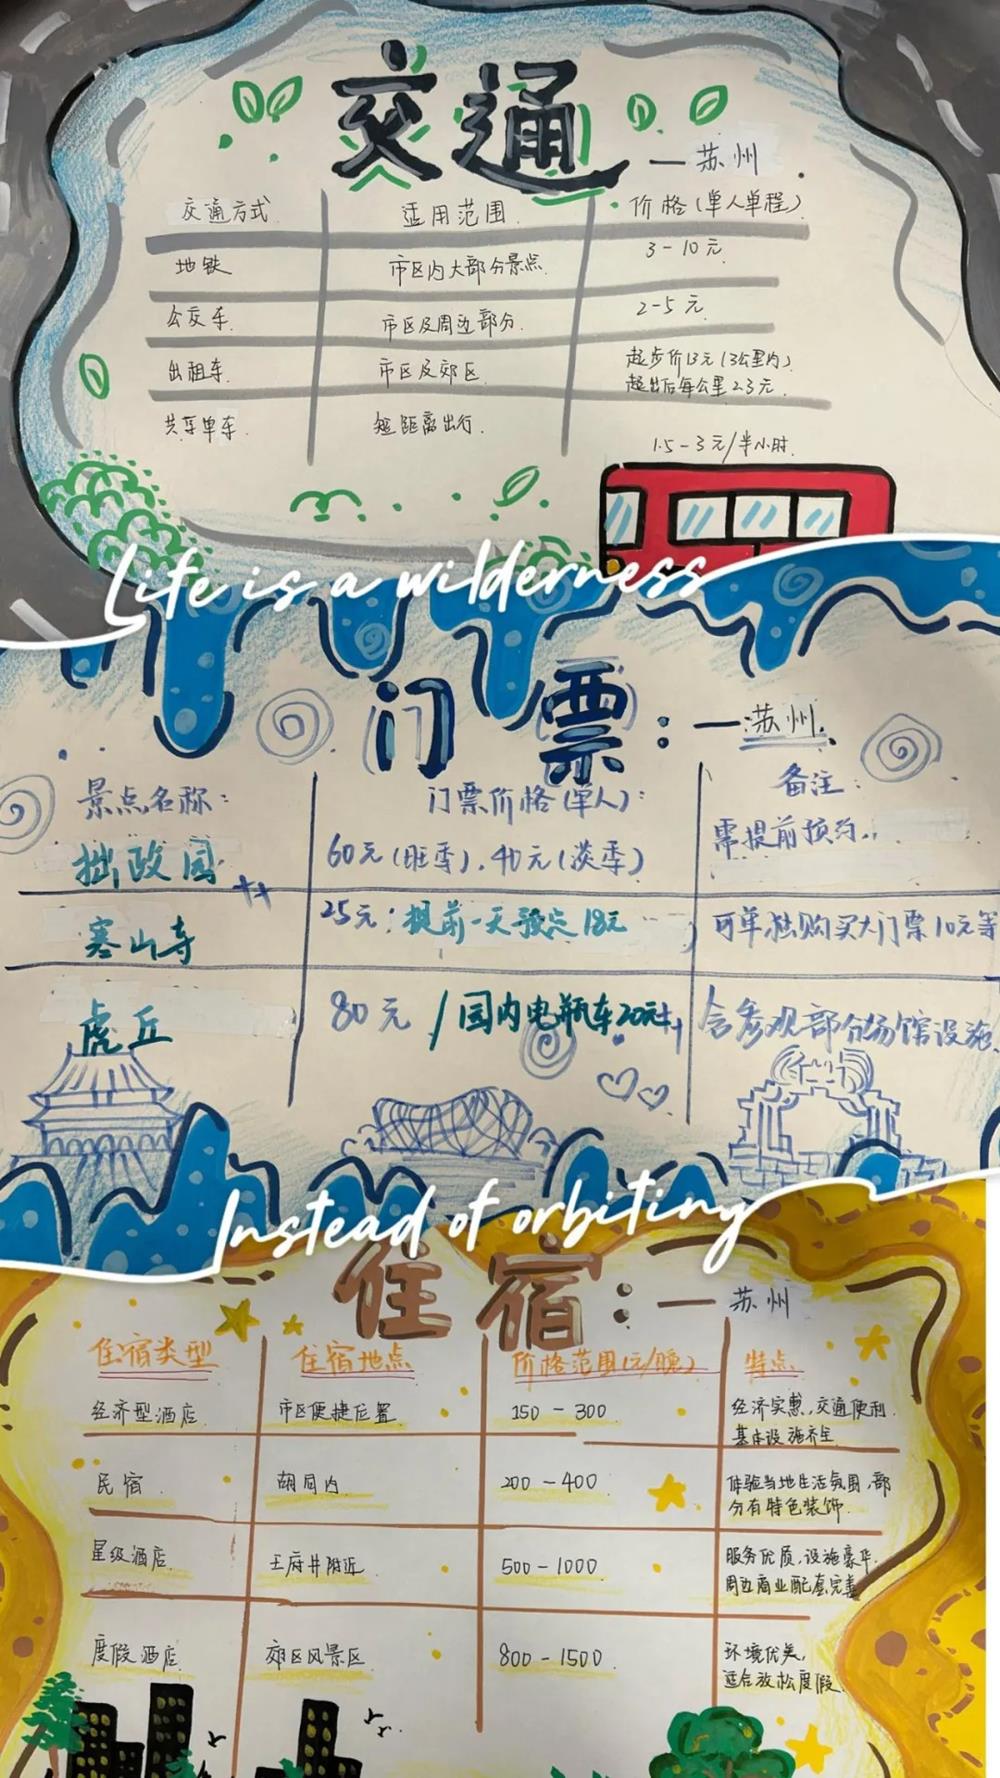 交通 — 苏州.
交通方式 适用范围 价格(单人单程)
地铁 市区内大部分景点 3-10元
公交车. 市区及周边部分. 2-5元
出租车. 市区及郊区 起步价13元(3公里内)
超出后每公里2.3元.
共享单车. 短距离出行. 1.5-3元/半小时.
Life is a wilderness
门票:—苏州.
景点名称: 门票价格(单人): 备注:
拙政园 60元(旺季).40元(淡季) 需提前预约.
寒山寺 25元:提前一天预定18元 可单独购买大门票10元等
虎丘 80元/园内电瓶车20元 含参观部分场馆设施.
Instead of orbiting
住宿:—苏州
住宿类型 住宿地点 价格范围(元/晚) 特点
经济型酒店. 市区便捷位置 150-300 经济实惠,交通便利.
基本设施齐全
民宿. 胡同内 200-400 体验当地生活氛围,部
分有特色装饰.
星级酒店. 王府井附近 500-1000 服务优质,设施豪华.
周边商业配套完善
度假酒店. 郊区风景区 800-1500 环境优美,
适合放松度假.